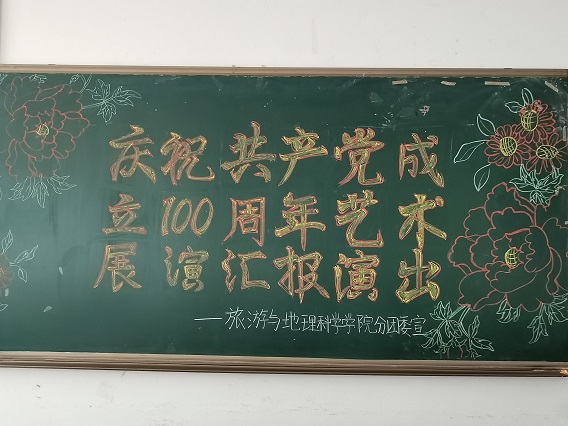 庆祝共产党成
立100周年艺术
展演汇报演出
——旅游与地理科学学院分团委宣